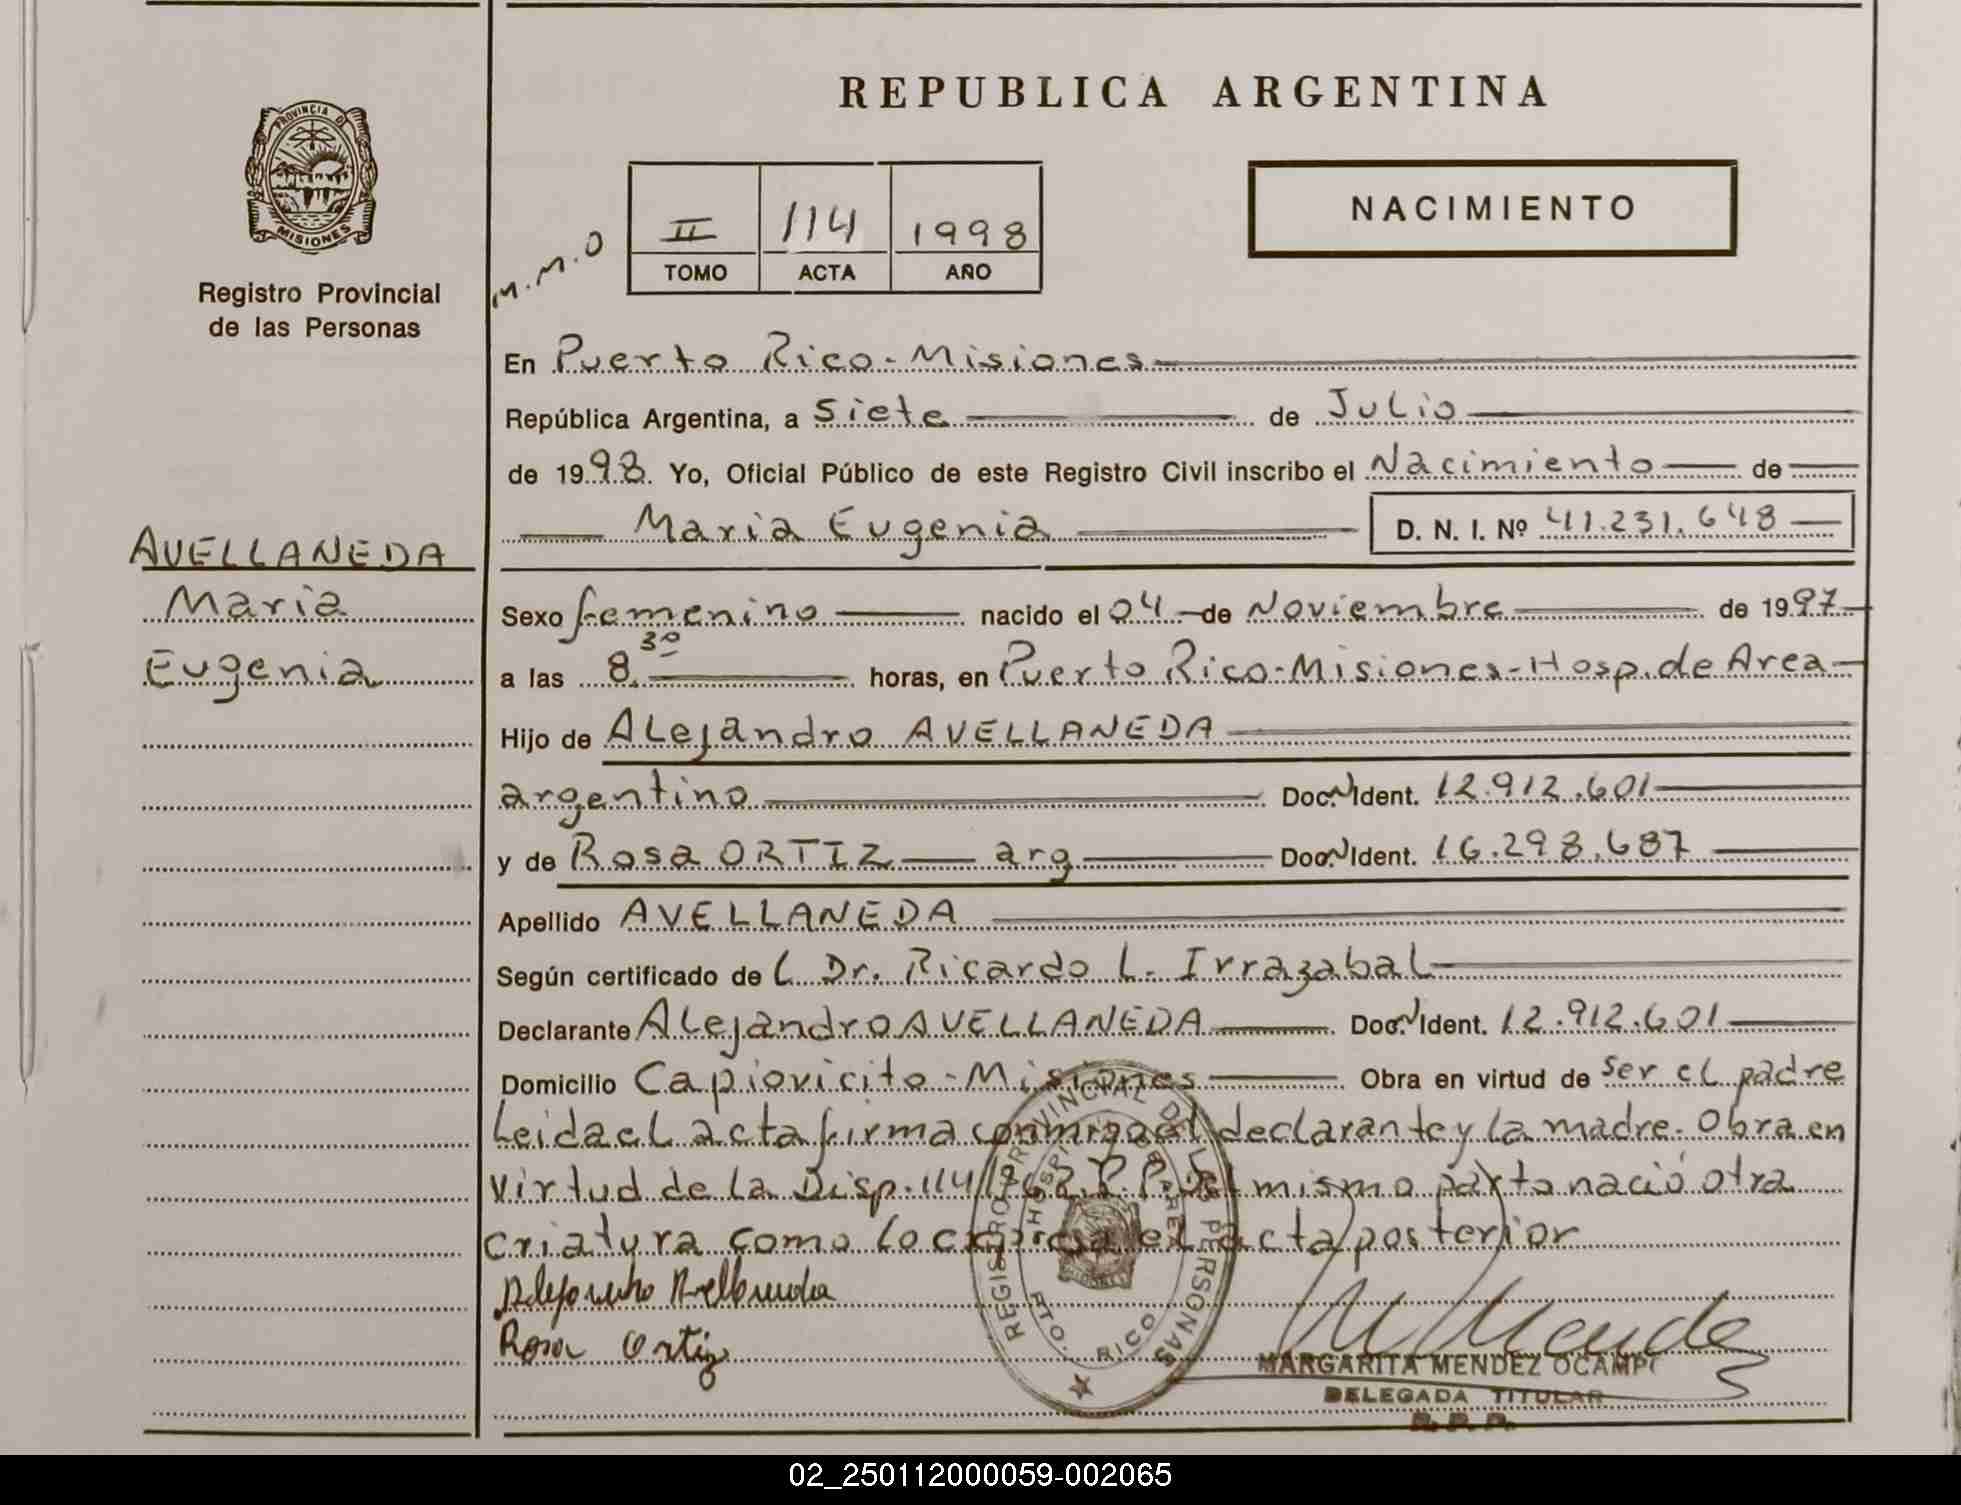 REPUBLICA ARGENTINA
PROVINCIA D
MISIONES
Registro Provincial
de las Personas
M.M.O
II 114 1998
TOMO ACTA AÑO
NACIMIENTO
En Puerto Rico-Misiones
República Argentina, a Siete de Julio
de 1998. Yo, Oficial Público de este Registro Civil inscribo el Nacimiento de
Maria Eugenia D. N. I. Nº 41.231.648
AVELLANEDA
Maria
Eugenia
Sexo femenino nacido el 04 de Noviembre de 1997
a las 8.30 horas, en Puerto Rico-Misiones-Hosp.de Area
Hijo de Alejandro AVELLANEDA
argentino Doc. Ident. 12.912.601
y de Rosa ORTIZ arg Doc. Ident. 16.298.687
Apellido AVELLANEDA
Según certificado de L Dr. Ricardo L. Irrazabal
Declarante Alejandro AVELLANEDA Doc. Ident. 12.912.601
Domicilio Capiovicito-Misiones Obra en virtud de ser el padre
Leida el acta firma conmigo el declarante y la madre. Obra en
virtud de la Disp. 114/ R.P.P. Del mismo parto nació otra
criatura como lo expresa el acta posterior
Alejandro Avellaneda
Rosa Ortiz
REGISTRO PROVINCIAL DE LAS PERSONAS
HOSPI AREA
PTO. RICO
M Mende
MARGARITA MENDEZ OCAMPO
DELEGADA TITULAR
R.P.P.
02_250112000059-002065